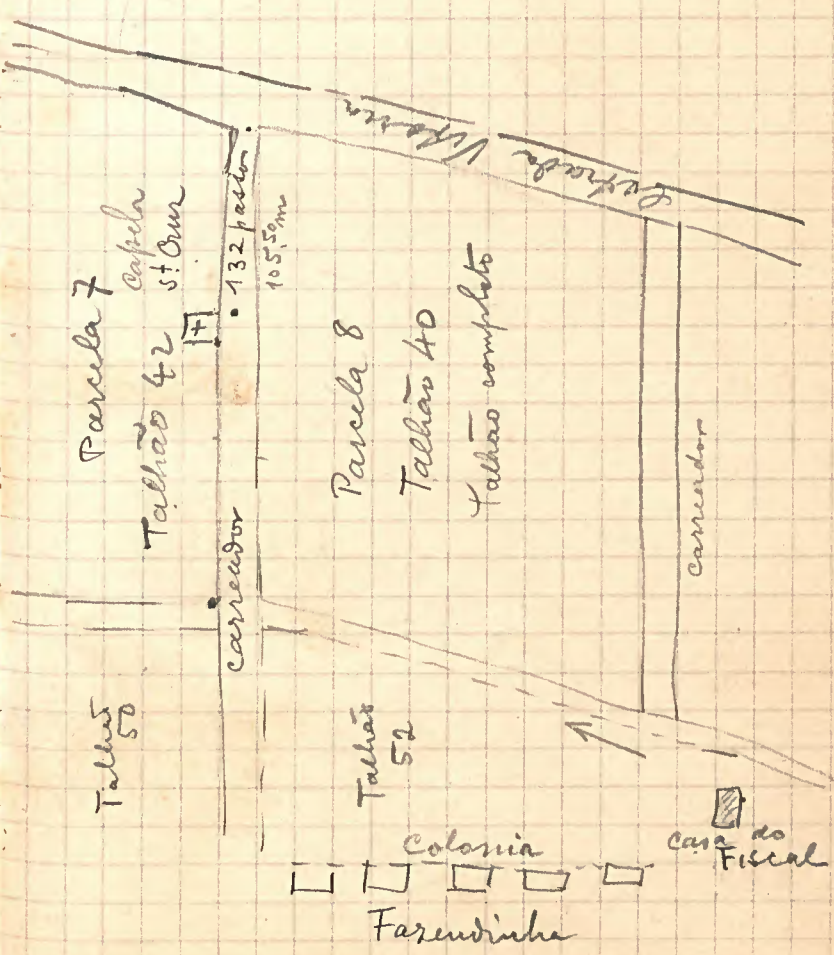 Estrada Vizinha
Parcela 7
Talhão 42
Capela
St. Cruz
132 passos
105,50m
Parcela 8
Talhão 40
Talhão completo
carreador
carreador
Talhão
50
Talhão
52
Colonia
Casa do
Fiscal
Fazendinha